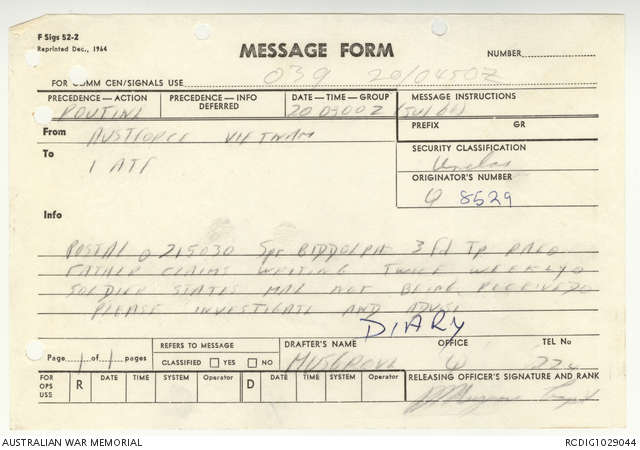 F Sigs 52-2
Reprinted Dec., 1964
MESSAGE FORM
NUMBER
FOR COMM CEN/SIGNALS USE 039 20/0450Z
PRECEDENCE—ACTION PRECEDENCE—INFO DATE—TIME—GROUP MESSAGE INSTRUCTIONS
DEFERRED
ROUTINE 200400Z
PREFIX GR
From AUSTFORCE VIETNAM
To 1 ATF
SECURITY CLASSIFICATION
Unclas
ORIGINATOR'S NUMBER
Q 8529
Info
POSTAL 0 215030 Spr BIDDOLPH 3 Fd Tp RAE0
FATHER CLAIMS WRITING TWICE WEEKLY0
SOLDIER STATES MAIL NOT BEING RECEIVED0
PLEASE INVESTIGATE AND ADVISE
DIARY
Page 1 of 1 pages
REFERS TO MESSAGE
CLASSIFIED YES NO
DRAFTER'S NAME OFFICE TEL No
MUSGROVE Q 22
FOR OPS USE R DATE TIME SYSTEM Operator D DATE TIME SYSTEM Operator
RELEASING OFFICER'S SIGNATURE AND RANK
AUSTRALIAN WAR MEMORIAL RCDIG1029044